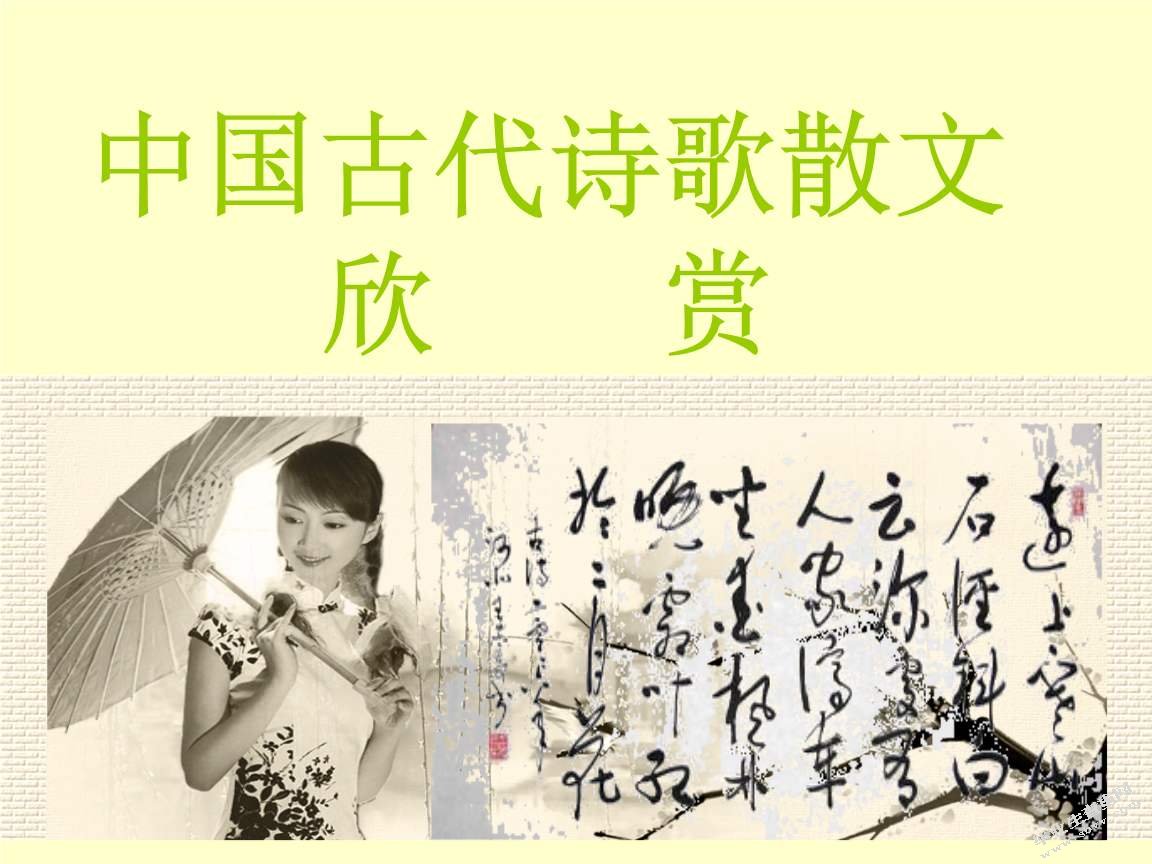 中国古代诗歌散文
欣 赏
远上寒山
石径斜白
云深处有
人家停车
坐爱枫林
晚霜叶红
於二月花
古诗